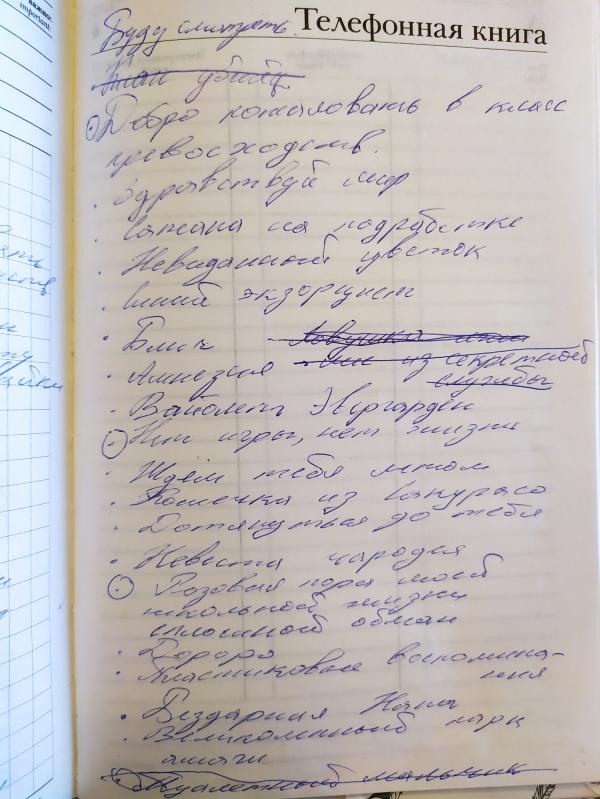 важное
important
Буду смотреть Телефонная книга
Добро пожаловать в класс
превосходств.
· Здравствуй мир
· Сатана на подработке
· Невиданный цветок
· Синий экзорцист
· Блич
· Амнезия из секретной
службы
· Вайолет Эвергарден
· Нет игры, нет жизни
· Ждём тебя летом
· Кошечка из Сакурасо
· Дотянуться до тебя
· Невеста чародея
· Розовая пора моей
школьной жизни
сплошной обман
· Дороро
· Пластиковые воспомина-
ния
· Бездарная Нана
· Великолепный парк
амаги
· Туалетный мальчик